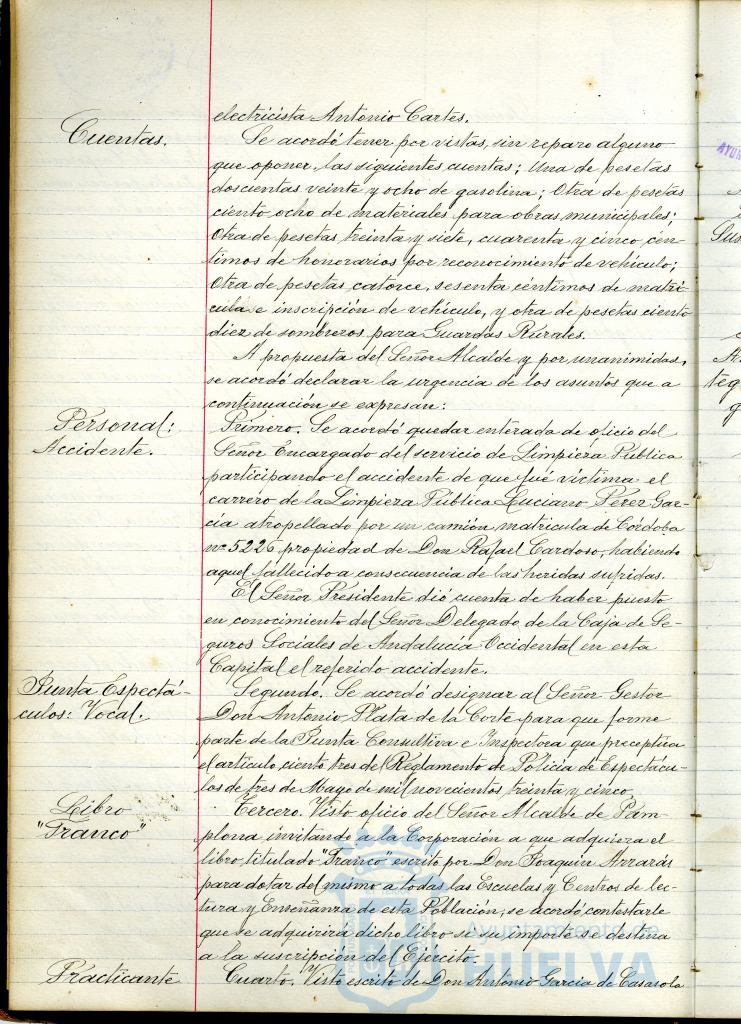 electricista Antonio Cartes.
Cuentas.
Se acordó tener por vistas, sin reparo alguno
que oponer, las siguientes cuentas; Una de pesetas
doscientas veinte y ocho de gasolina; Otra de pesetas
ciento ocho de materiales para obras municipales;
Otra de pesetas treinta y siete, cuarenta y cinco cén-
timos de honorarios por reconocimiento de vehículo;
Otra de pesetas catorce, sesenta céntimos de matrí-
cula e inscripción de vehículo, y otra de pesetas ciento
diez de sombreros para Guardas Rurales.
A propuesta del Señor Alcalde y por unanimidad,
se acordó declarar la urgencia de los asuntos que a
continuación se expresan:
Personal:
Accidente.
Primero. Se acordó quedar enterada de oficio del
Señor Encargado del servicio de Limpieza Pública
participando el accidente de que fué víctima el
carrero de la Limpieza Pública Luciano Pérez Gar-
cía atropellado por un camión matricula de Córdoba
nº 5226 propiedad de Don Rafael Cardoso, habiendo
aquel fallecido a consecuencia de las heridas sufridas.
El Señor Presidente dió cuenta de haber puesto
en conocimiento del Señor Delegado de la Caja de Se-
guros Sociales de Andalucía Occidental en esta
Capital el referido accidente.
Junta Espectá-
culos: Vocal.
Segundo. Se acordó designar al Señor Gestor
Don Antonio Plata de la Corte para que forme
parte de la Junta Consultiva e Inspectora que preceptúa
el artículo ciento tres del Reglamento de Policía de Espectácu-
los de tres de Mayo de mil novecientos treinta y cinco.
Libro
"Franco"
Tercero. Visto oficio del Señor Alcalde de Pam-
plona invitando a la Corporación a que adquiera el
libro, titulado "Franco" escrito por Don Joaquín Arrarás
para dotar del mismo a todas las Escuelas y Centros de lec-
tura y Enseñanza de esta Población, se acordó contestarle
que se adquirirá dicho libro si su importe se destina
a la suscripción del Ejército.
Practicante
Cuarto. Visto escrito de Don Antonio García de Casasola
Ayuntamiento de
HUELVA